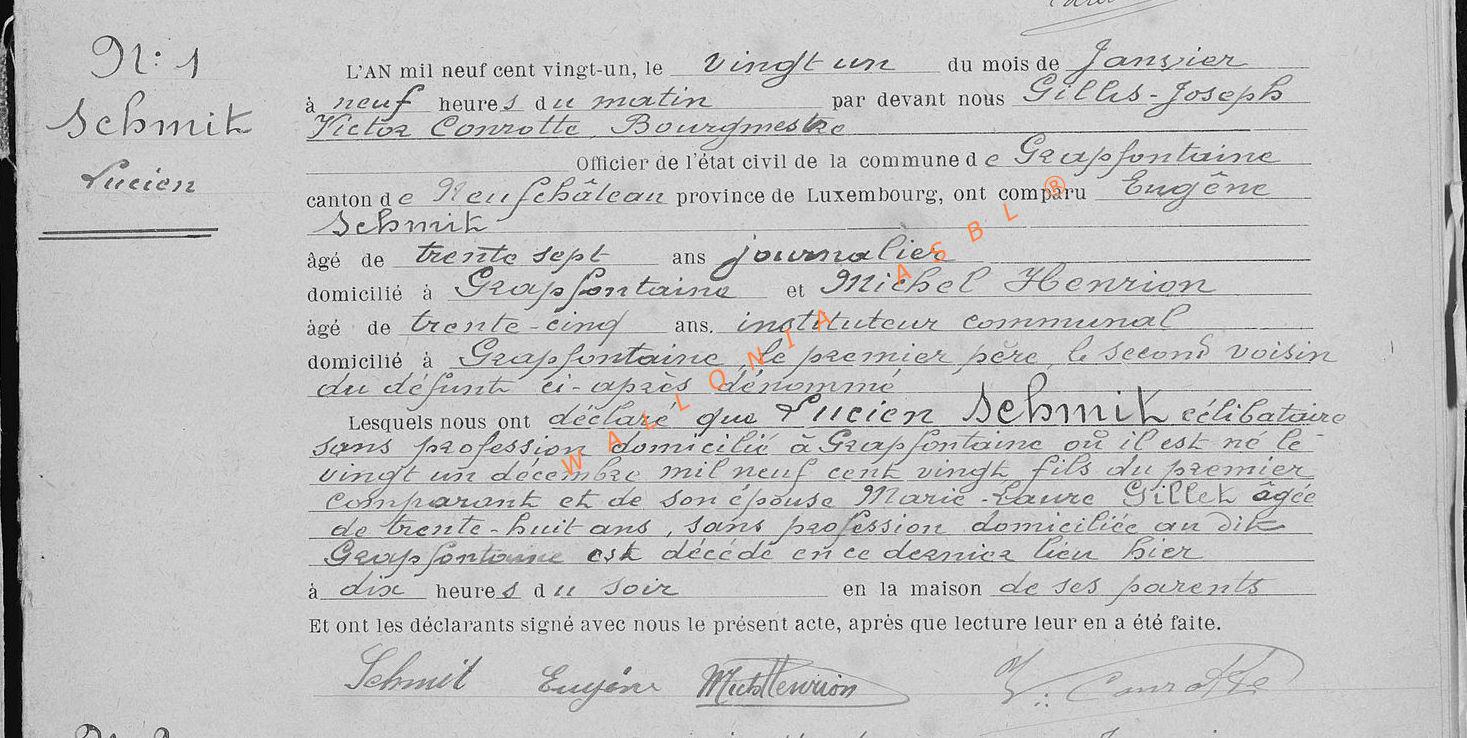 N: 1
Schmit
Lucien
L'AN mil neuf cent vingt-un, le vingt un du mois de Janvier
à neuf heures du matin par devant nous Gilles-Joseph
Victor Conrotte, Bourgmestre
Officier de l'état civil de la commune de Grapfontaine
canton de Neufchâteau province de Luxembourg, ont comparu Eugêne
Schmit
âgé de trente sept ans journalier
domicilié à Grapfontaine et Michel Henrion
âgé de trente-cinq ans. instituteur communal
domicilié à Grapfontaine, le premier père, le second voisin
du défunt ci-après dénommé
Lesquels nous ont déclaré que Lucien Schmit célibataire
sans profession domicilié à Grapfontaine où il est né le
vingt un décembre mil neuf cent vingt, fils du premier
comparant et de son épouse Marie-Laure Gillet âgée
de trente-huit ans, sans profession domiciliée au dit
Grapfontaine est décédé en ce dernier lieu hier
à dix heures du soir en la maison de ses parents
Et ont les déclarants signé avec nous le présent acte, après que lecture leur en a été faite.
Schmit Eugêne Mich Henrion V. Conrotte
WALLONIA ASBL ®